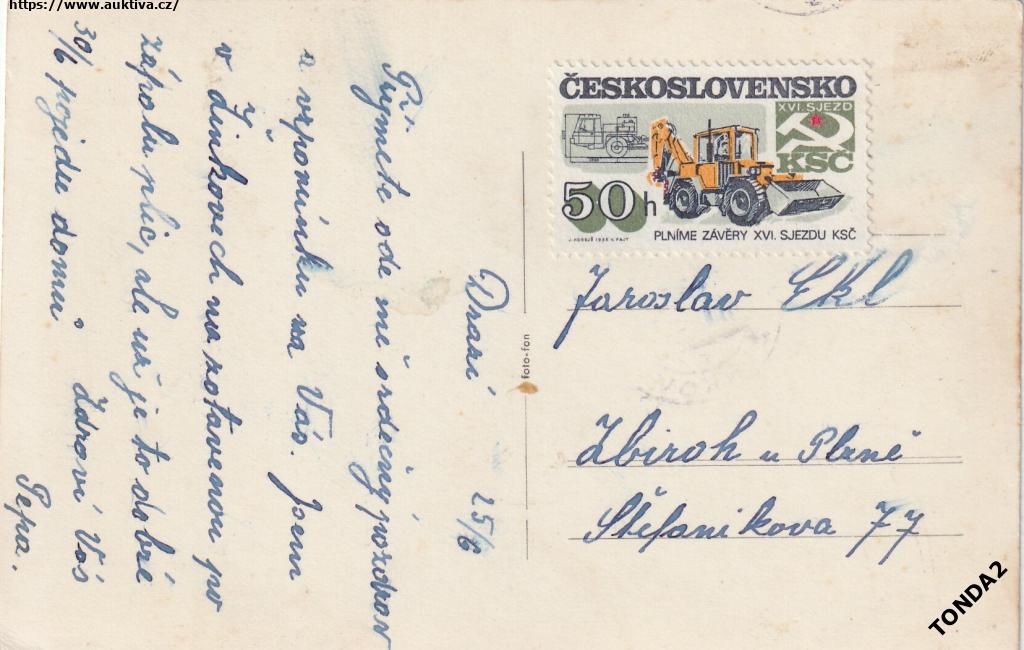 https://www.auktiva.cz/
Drazí 25/6
Přijměte ode mě srdečný pozdrav
a vzpomínku na Vás. Jsem
v Žinkovech na zotavenou po
zápalu plic, ale už je to dobré
30/6 pojedu domů Zdraví Vás
Pepa.
foto-fon
ČESKOSLOVENSKO
XVI. SJEZD
KSČ
50 h
PLNÍME ZÁVĚRY XVI. SJEZDU KSČ
Jaroslav Ekl
Zbiroh u Plzně
Štefanikova 77
TONDA2